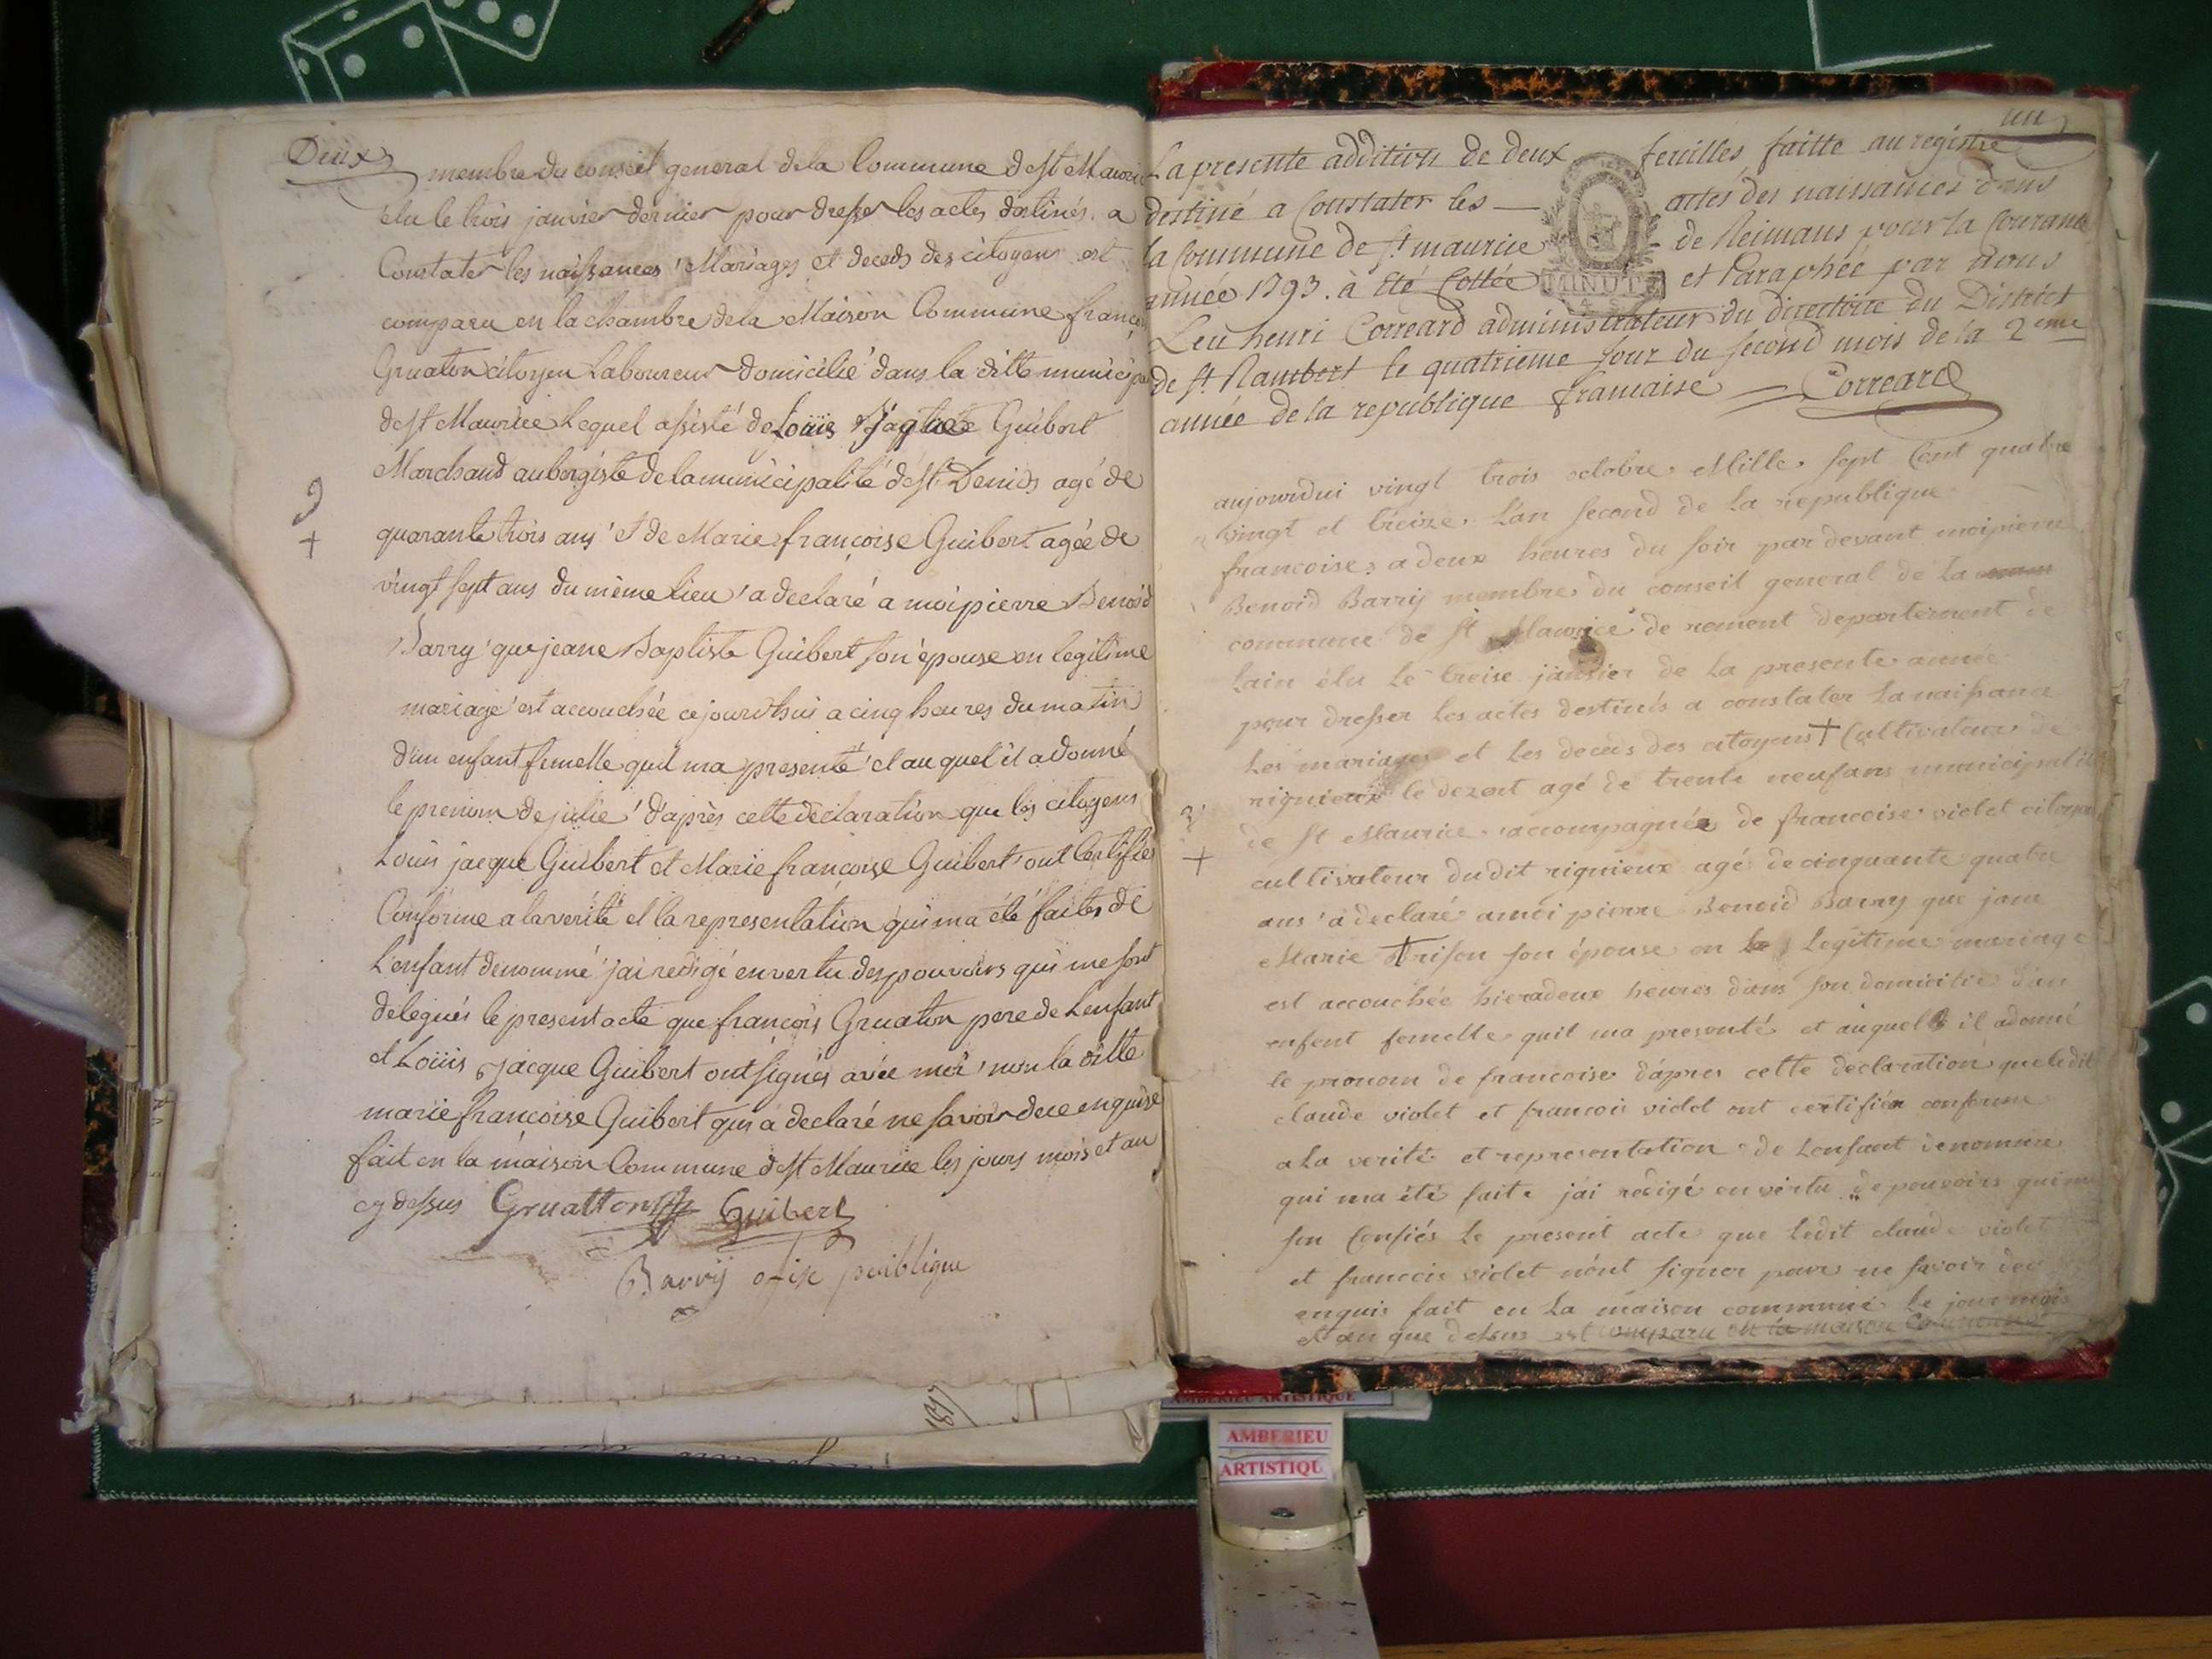 Deux
membre du conseil general dela Commune de St Mauri
élu le trois janvier dernier pour dresser les actes destinés a
Constater les naissances, Mariages et deceds des citoyens est
comparu en la chambre dela Maison Commune françoi
Gruaton citoyen Laboureur domicilié dans la ditte municipa
de St Maurice Lequel assisté de Loüis Guibert
Marchand aubergiste de la municipalité de St Denids agé de
9
quarante trois ans, & de Marie françoise Guibert agée de
+
vingt sept ans du même lieu, a declaré a moi pierre Benoid
Barry, que jeane Baptiste Guibert son épouse en legitime
mariage est accouchée ce jourdhui a cinq heures du matin
d'un enfant femelle quil ma presenté, et au quel il a donné
le prenom de julie, d'après cette declaration que les citoyens
Louis jacque Guibert et Marie françoise Guibert ont Certifiée
Conforme a la verité et la representation qui ma été faites de
L'enfant denommé j'ai redigé en vertu des pouvoirs qui me sont
delegués le present acte que françois Gruaton pere de Lenfant
et Loüis jacque Guibert ont signés avec moi, non la ditte
marie françoise Guibert qui a declaré ne savoir de ce enquise
fait en la maison Commune de St Maurice les jours mois et an
cy dessus Gruatton Guibert
Barry ofise publique
1817
un
La presente addition de deux feuilles faitte au registre
destiné a Constater les — actes des naissances dans
la Commune de St maurice - de Reimans pour la Courante
MINUTE
année 1793. à été Cottée et Paraphée par nous
Leu henri Corréard administrateur du directoire du District
de St Rambert le quatrieme jour du second mois de la 2eme
année de la republique francaise — Correard
aujourdui vingt trois octobre Mille sept Cent quatre
vingt et treize Lan second de la republique
francoise, a deux heures du soir par devant moi pierre
Benoid Barry membre du conseil general de la
commune de St Maurice de rement departement de
Lain élu le treise janvier de la presente année
pour dresser les actes destinés a constater la naissance
Les mariages et les deceds des citoyens + Cultivateur de
rignieux le dezert agé de trente neuf ans municipalité
3
de St Maurice, accompagnée de francoise violet citoyen
+
cultivateur dudit rignieux agé de cinquante quatre
ans, a declaré a moi pierre Benoid Barry que jane
Marie Trison son épouse en legitime mariage
est accouchée hier a deux heures dans son domicilie d'un
enfent femelle quil ma presenté et auquel il a donné
le pronom de francoise d'apres cette declaration que ledit
claude violet et francois violet ont certifiée conforme
a la verité et representation de Lenfant denommée
qui ma été faite jai redigé en vertu de pouvoirs qui me
son Confiés le present acte que ledit claude violet
et francois violet n'ont signer pour ne savoir de ce
enquis fait en la maison commune le jour mois
et an que desus est comparu en la maison Commune
AMBERIEU ARTISTIQUE
AMBERIEU
ARTISTIQU